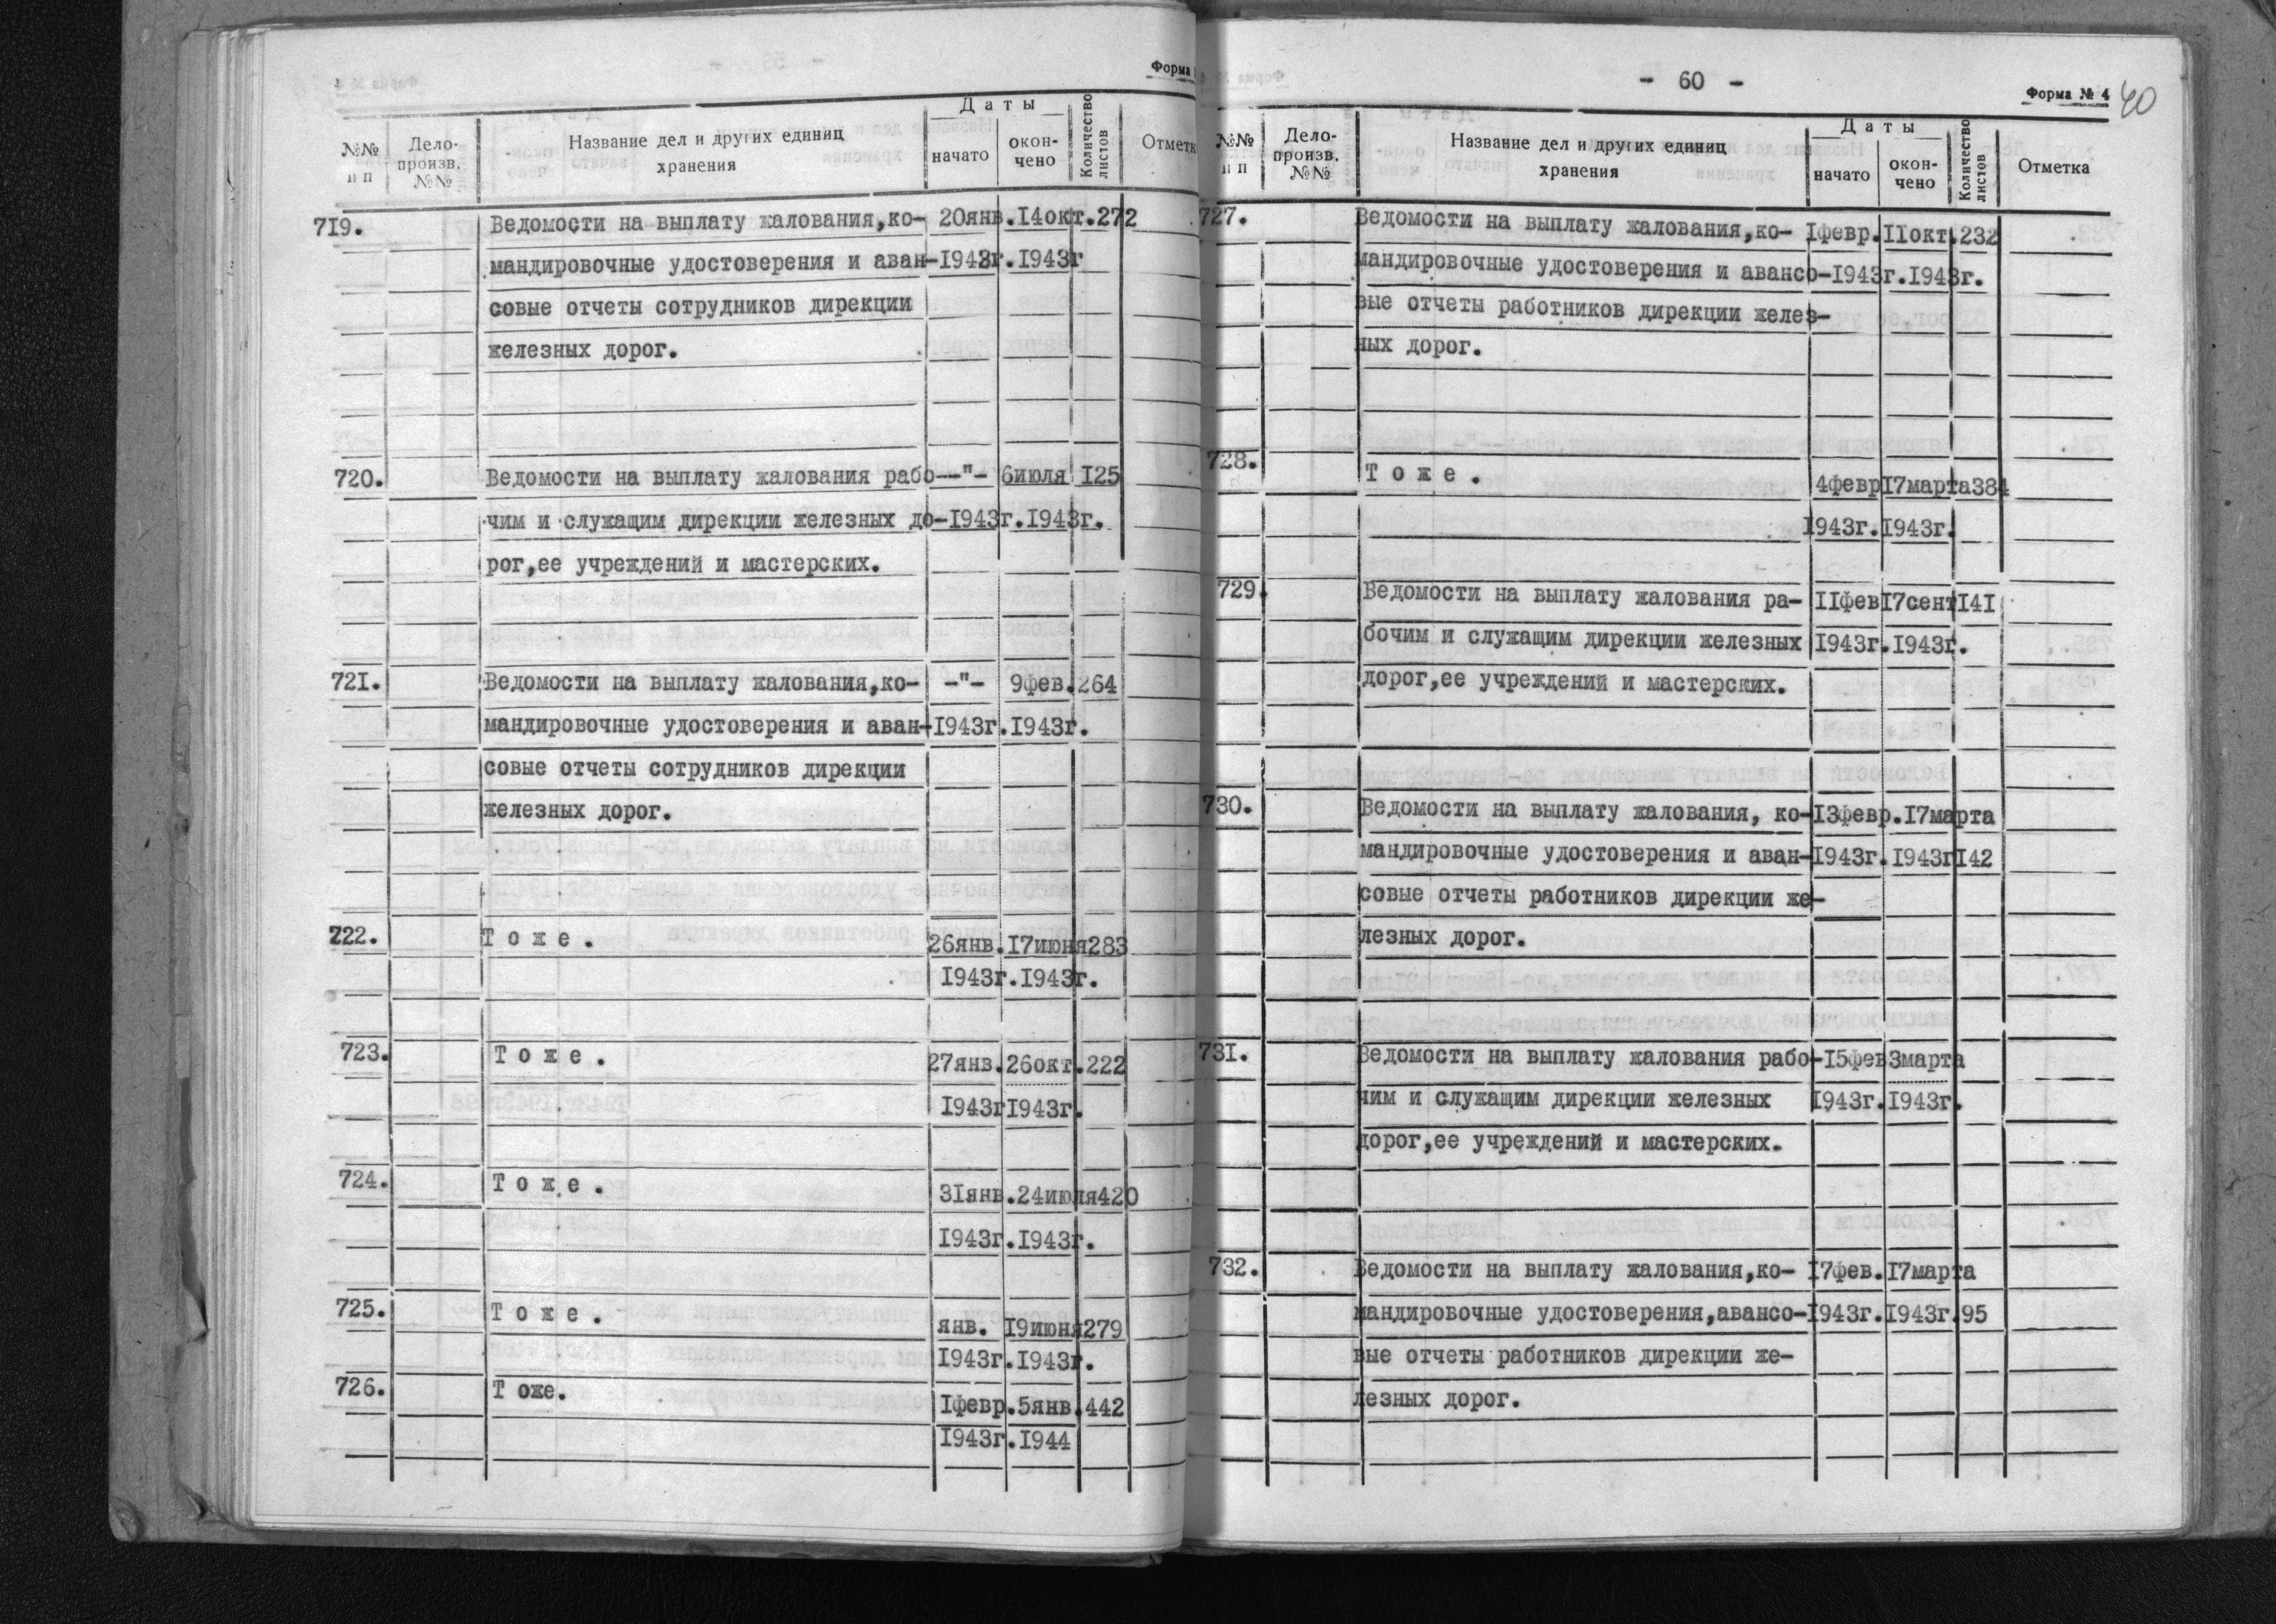 Форма
№№ п п
Дело- произв. №№
Название дел и других единиц хранения
Даты
начато
окон- чено
Количество листов
Отметк
719. Ведомости на выплату жалования,ко- 20янв. 14окт. 272
мандировочные удостоверения и аван- 1943г. 1943г
совые отчеты сотрудников дирекции
железных дорог.
720. Ведомости на выплату жалования рабо- -"- 6июля 125
чим и служащим дирекции железных до- 1943г. 1943г.
рог,ее учреждений и мастерских.
721. Ведомости на выплату жалования,ко- -"- 9фев. 264
мандировочные удостоверения и аван- 1943г. 1943г.
совые отчеты сотрудников дирекции
железных дорог.
722. Т о ж е . 26янв. 17июня 283
1943г. 1943г.
723. Т о ж е . 27янв. 26окт. 222
1943г 1943г.
724. Т о ж е . 31янв. 24июля 420
1943г. 1943г.
725. Т о ж е . янв. 19июня 279
1943г. 1943г.
726. Т оже. 1февр. 5янв. 442
1943г. 1944
- 60 -
Форма № 4
40
№№ п п
Дело- произв. №№
Название дел и других единиц хранения
Даты
начато
окон- чено
Количество листов
Отметка
727. Ведомости на выплату жалования,ко- 1февр. 11окт. 232
мандировочные удостоверения и авансо- 1943г. 1943г.
вые отчеты работников дирекции желез-
ных дорог.
728. Т о ж е . 4февр 17марта 384
1943г. 1943г.
729. Ведомости на выплату жалования ра- 11фев 17сент 141
бочим и служащим дирекции железных 1943г. 1943г.
дорог,ее учреждений и мастерских.
730. Ведомости на выплату жалования, ко- 13февр. 17марта
мандировочные удостоверения и аван- 1943г. 1943г 142
совые отчеты работников дирекции же-
лезных дорог.
731. Ведомости на выплату жалования рабо- 15фев 3марта
чим и служащим дирекции железных 1943г. 1943г.
дорог,ее учреждений и мастерских.
732. Ведомости на выплату жалования,ко- 17фев. 17марта
мандировочные удостоверения,авансо- 1943г. 1943г. 95
вые отчеты работников дирекции же-
лезных дорог.